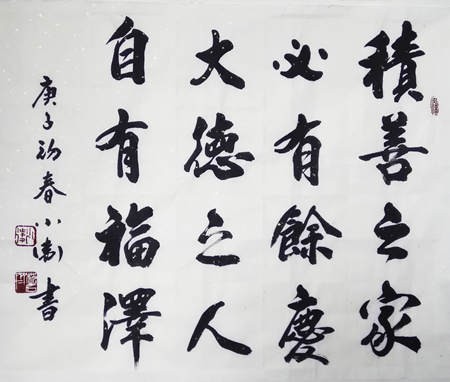 積善之家
必有餘慶
大德之人
自有福澤
庚子初春小衛書